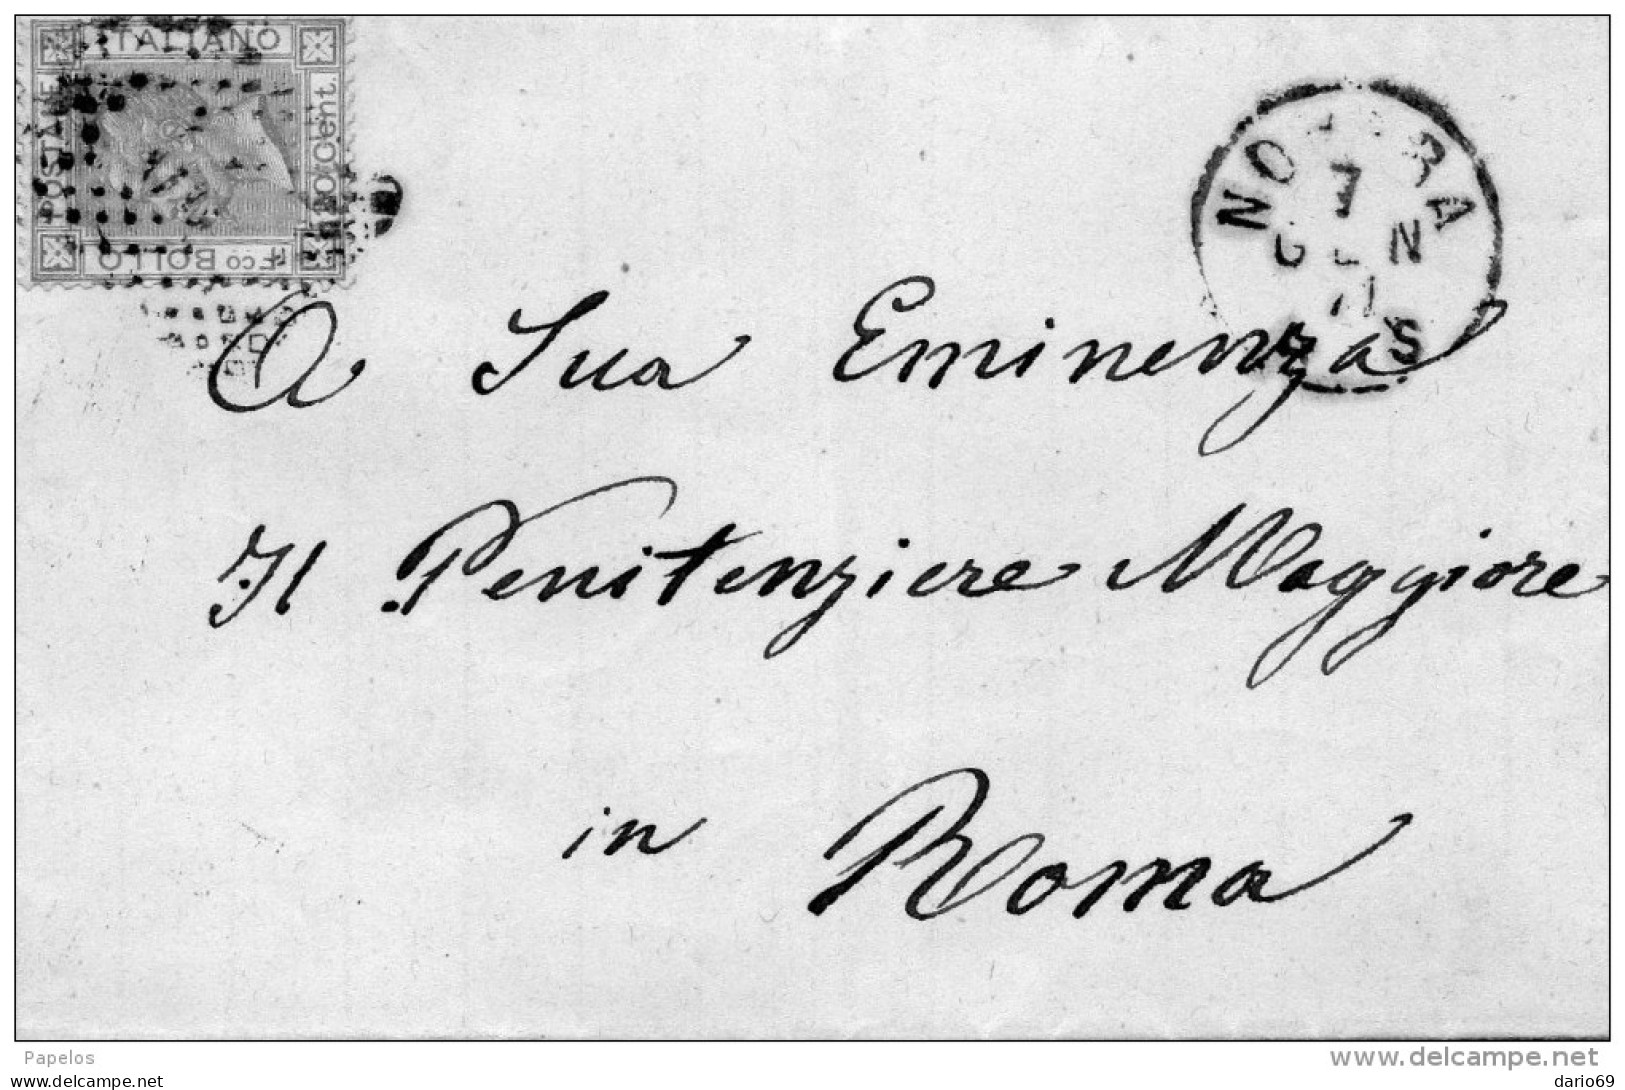 ITALIANO
POSTALE
20 Cent.
Fco BOLLO
NOCERA
7
GEN
71
S
A Sua Eminenza
Il Penitenziere Maggiore
in Roma
Papelos
www.delcampe.net
dario69